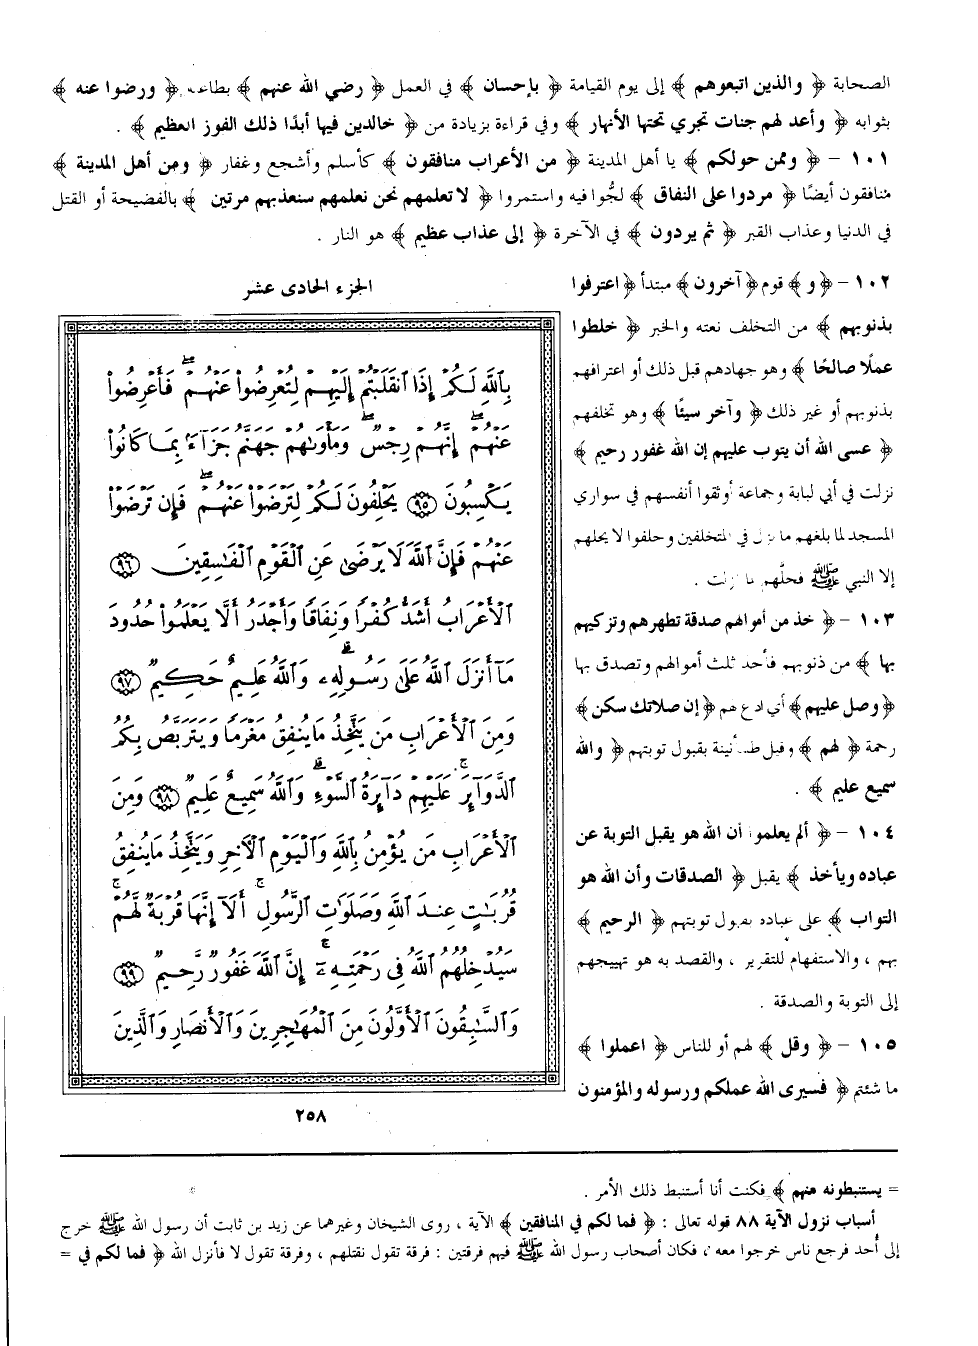 الصحابة ﴿ والذين اتبعوهم ﴾ إلى يوم القيامة ﴿ بإحسان ﴾ في العمل ﴿ رضي الله عنهم ﴾ بطاعته ﴿ ورضوا عنه ﴾
بثوابه ﴿ وأعد لهم جنات تجري تحتها الأنهار ﴾ وفي قراءة بزيادة من ﴿ خالدين فيها أبدًا ذلك الفوز العظيم ﴾ .
١٠١ - ﴿ وممن حولكم ﴾ يا أهل المدينة ﴿ من الأعراب منافقون ﴾ كأسلم وأشجع وغفار ﴿ ومن أهل المدينة ﴾
منافقون أيضًا ﴿ مردوا على النفاق ﴾ لجُّوا فيه واستمروا ﴿ لا تعلمهم نحن نعلمهم سنعذبهم مرتين ﴾ بالفضيحة أو القتل
في الدنيا وعذاب القبر ﴿ ثم يردون ﴾ في الآخرة ﴿ إلى عذاب عظيم ﴾ هو النار .
١٠٢ - ﴿ و ﴾ قوم ﴿ آخرون ﴾ مبتدأ ﴿ اعترفوا
بذنوبهم ﴾ من التخلف نعته والخبر ﴿ خلطوا
عملًا صالحًا ﴾ وهو جهادهم قبل ذلك أو اعترافهم
بذنوبهم أو غير ذلك ﴿ وآخر سيئًا ﴾ وهو تخلفهم
﴿ عسى الله أن يتوب عليهم إن الله غفور رحيم ﴾
نزلت في أبي لبابة وجماعة أوثقوا أنفسهم في سواري
المسجد لما بلغهم ما نزل في المتخلفين وحلفوا لا يحلهم
إلا النبي ﷺ فحلَّهم لما نزلت .
١٠٣ - ﴿ خذ من أموالهم صدقة تطهرهم وتزكيهم
بها ﴾ من ذنوبهم فأخذ ثلث أموالهم وتصدق بها
﴿ وصل عليهم ﴾ أي ادع لهم ﴿ إن صلاتك سكن ﴾
رحمة ﴿ لهم ﴾ وقيل طمأنينة بقبول توبتهم ﴿ والله
سميع عليم ﴾ .
١٠٤ - ﴿ ألم يعلموا أن الله هو يقبل التوبة عن
عباده ويأخذ ﴾ يقبل ﴿ الصدقات وأن الله هو
التواب ﴾ على عباده بقبول توبتهم ﴿ الرحيم ﴾
بهم ، والاستفهام للتقرير ، والقصد به هو تهييجهم
إلى التوبة والصدقة .
١٠٥ - ﴿ وقل ﴾ لهم أو للناس ﴿ اعملوا ﴾
ما شئتم ﴿ فسيرى الله عملكم ورسوله والمؤمنون
الجزء الحادى عشر
بِٱللَّهِ لَكُمْ إِذَا ٱنقَلَبْتُمْ إِلَيْهِمْ لِتُعْرِضُوا۟ عَنْهُمْ ۖ فَأَعْرِضُوا۟
عَنْهُمْ ۖ إِنَّهُمْ رِجْسٌ ۖ وَمَأْوَىٰهُمْ جَهَنَّمُ جَزَآءًۢ بِمَا كَانُوا۟
يَكْسِبُونَ ٩٥ يَحْلِفُونَ لَكُمْ لِتَرْضَوْا۟ عَنْهُمْ ۖ فَإِن تَرْضَوْا۟
عَنْهُمْ فَإِنَّ ٱللَّهَ لَا يَرْضَىٰ عَنِ ٱلْقَوْمِ ٱلْفَـٰسِقِينَ ٩٦
ٱلْأَعْرَابُ أَشَدُّ كُفْرًا وَنِفَاقًا وَأَجْدَرُ أَلَّا يَعْلَمُوا۟ حُدُودَ
مَآ أَنزَلَ ٱللَّهُ عَلَىٰ رَسُولِهِۦ ۗ وَٱللَّهُ عَلِيمٌ حَكِيمٌ ٩٧
وَمِنَ ٱلْأَعْرَابِ مَن يَتَّخِذُ مَا يُنفِقُ مَغْرَمًا وَيَتَرَبَّصُ بِكُمُ
ٱلدَّوَآئِرَ ۚ عَلَيْهِمْ دَآئِرَةُ ٱلسَّوْءِ ۗ وَٱللَّهُ سَمِيعٌ عَلِيمٌ ٩٨ وَمِنَ
ٱلْأَعْرَابِ مَن يُؤْمِنُ بِٱللَّهِ وَٱلْيَوْمِ ٱلْـَٔاخِرِ وَيَتَّخِذُ مَا يُنفِقُ
قُرُبَـٰتٍ عِندَ ٱللَّهِ وَصَلَوَٰتِ ٱلرَّسُولِ ۚ أَلَآ إِنَّهَا قُرْبَةٌ لَّهُمْ ۚ
سَيُدْخِلُهُمُ ٱللَّهُ فِى رَحْمَتِهِۦٓ ۗ إِنَّ ٱللَّهَ غَفُورٌ رَّحِيمٌ ٩٩
وَٱلسَّـٰبِقُونَ ٱلْأَوَّلُونَ مِنَ ٱلْمُهَـٰجِرِينَ وَٱلْأَنصَارِ وَٱلَّذِينَ
٢٥٨
= يستنبطونه منهم ﴾ فكنت أنا أستنبط ذلك الأمر .
أسباب نزول الآية ٨٨ قوله تعالى : ﴿ فما لكم في المنافقين ﴾ الآية ، روى الشيخان وغيرهما عن زيد بن ثابت أن رسول الله ﷺ خرج
إلى أُحد فرجع ناس خرجوا معه ، فكان أصحاب رسول الله ﷺ فيهم فرقتين : فرقة تقول نقتلهم ، وفرقة تقول لا فأنزل الله ﴿ فما لكم في =